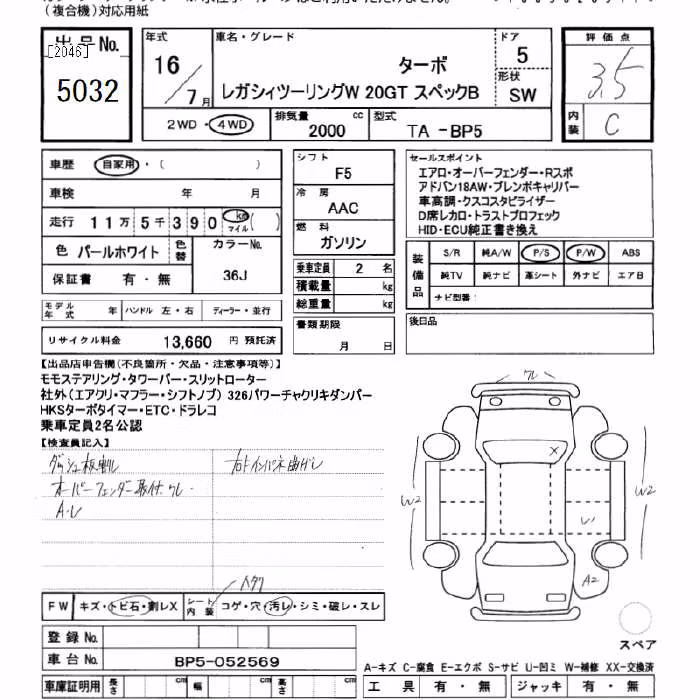 (複合機)対応用紙
出品No.
[2046]
5032
年式
16／7月
車名・グレード
ターボ
レガシィツーリングW 20GT スペックB
ドア
5
形状
SW
評価点
3.5
内装
C
2WD・4WD
排気量
2000 cc
型式
TA -BP5
車歴 自家用・( )
車検 年 月
走行 11万5千390 km マイル ( )
色 パールホワイト 色替 カラーNo.
36J
保証書 有・無
モデル年式 年 ハンドル 左・右 ディーラー・並行
リサイクル料金 13,660 円 預託済
シフト
F5
冷房
AAC
燃料
ガソリン
乗車定員 2 名
積載量 kg
総重量 kg
書類期限
月 日
セールスポイント
エアロ・オーバーフェンダー・Rスポ
アドバン18AW・ブレンボキャリパー
車高調・クスコスタビライザー
D席レカロ・トラストプロフェック
HID・ECU純正書き換え
装備品 S/R 純A/W P/S P/W ABS
純TV 純ナビ 革シート 外ナビ エアB
ナビ型番:
後日品
【出品店申告欄(不良箇所・欠品・注意事項等)】
モモステアリング・タワーバー・スリットローター
社外(エアクリ・マフラー・シフトノブ) 326パワーチャクリキダンパー
HKSターボタイマー・ETC・ドラレコ
乗車定員2名公認
【検査員記入】
ダッシュ板割レ
オーバーフェンダー取付ワレ
A・レ
右ドインパネ曲ガレ
ワレ
X
W2
W2
レ
A2
FW キズ・トビ石・割レX シート内装 コゲ・穴・汚レ・シミ・破レ・スレ
登録No.
車台No. BP5-052569
車庫証明用 長さ cm 幅 cm 高さ cm
スペア
A-キズ C-腐食 E-エクボ S-サビ U-凹ミ W-補修 XX-交換済
工具 有・無 ジャッキ 有・無